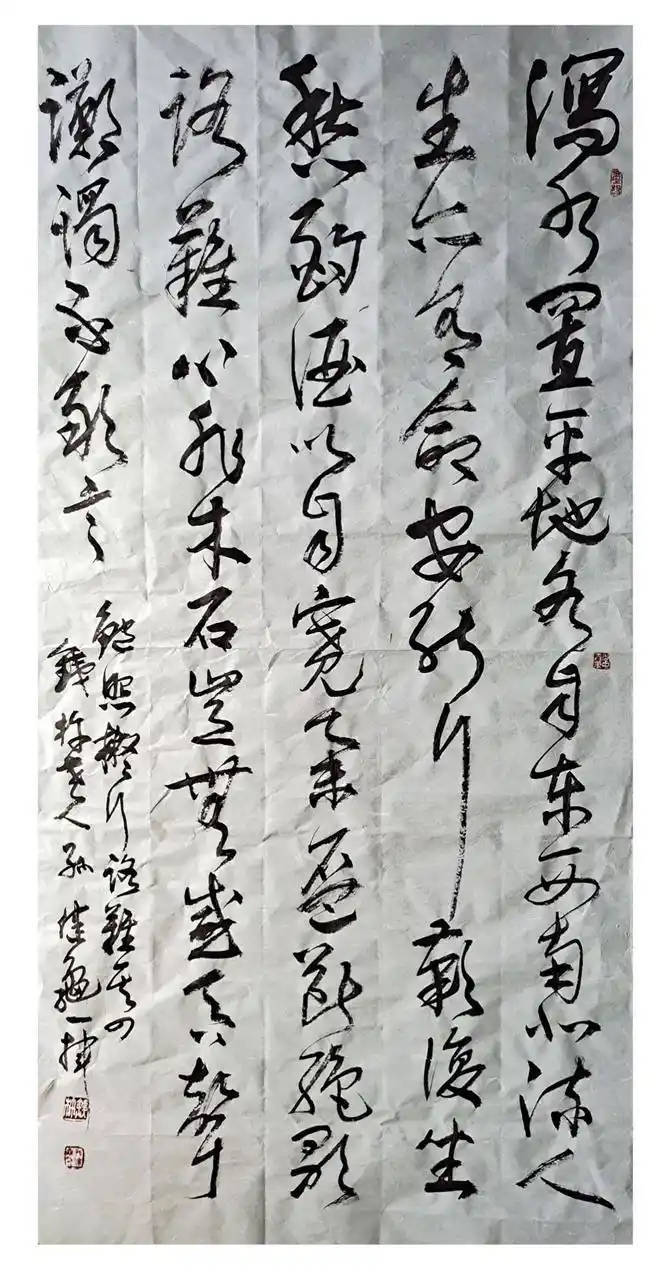 瀉水置平地各自東西南北流人
生亦有命安能行歎復坐
愁酌酒以自寬舉盃斷絕歌
路難心非木石豈無感吞聲
躑躅不敢言
鮑照擬行路難其四
老人孫佳一揮